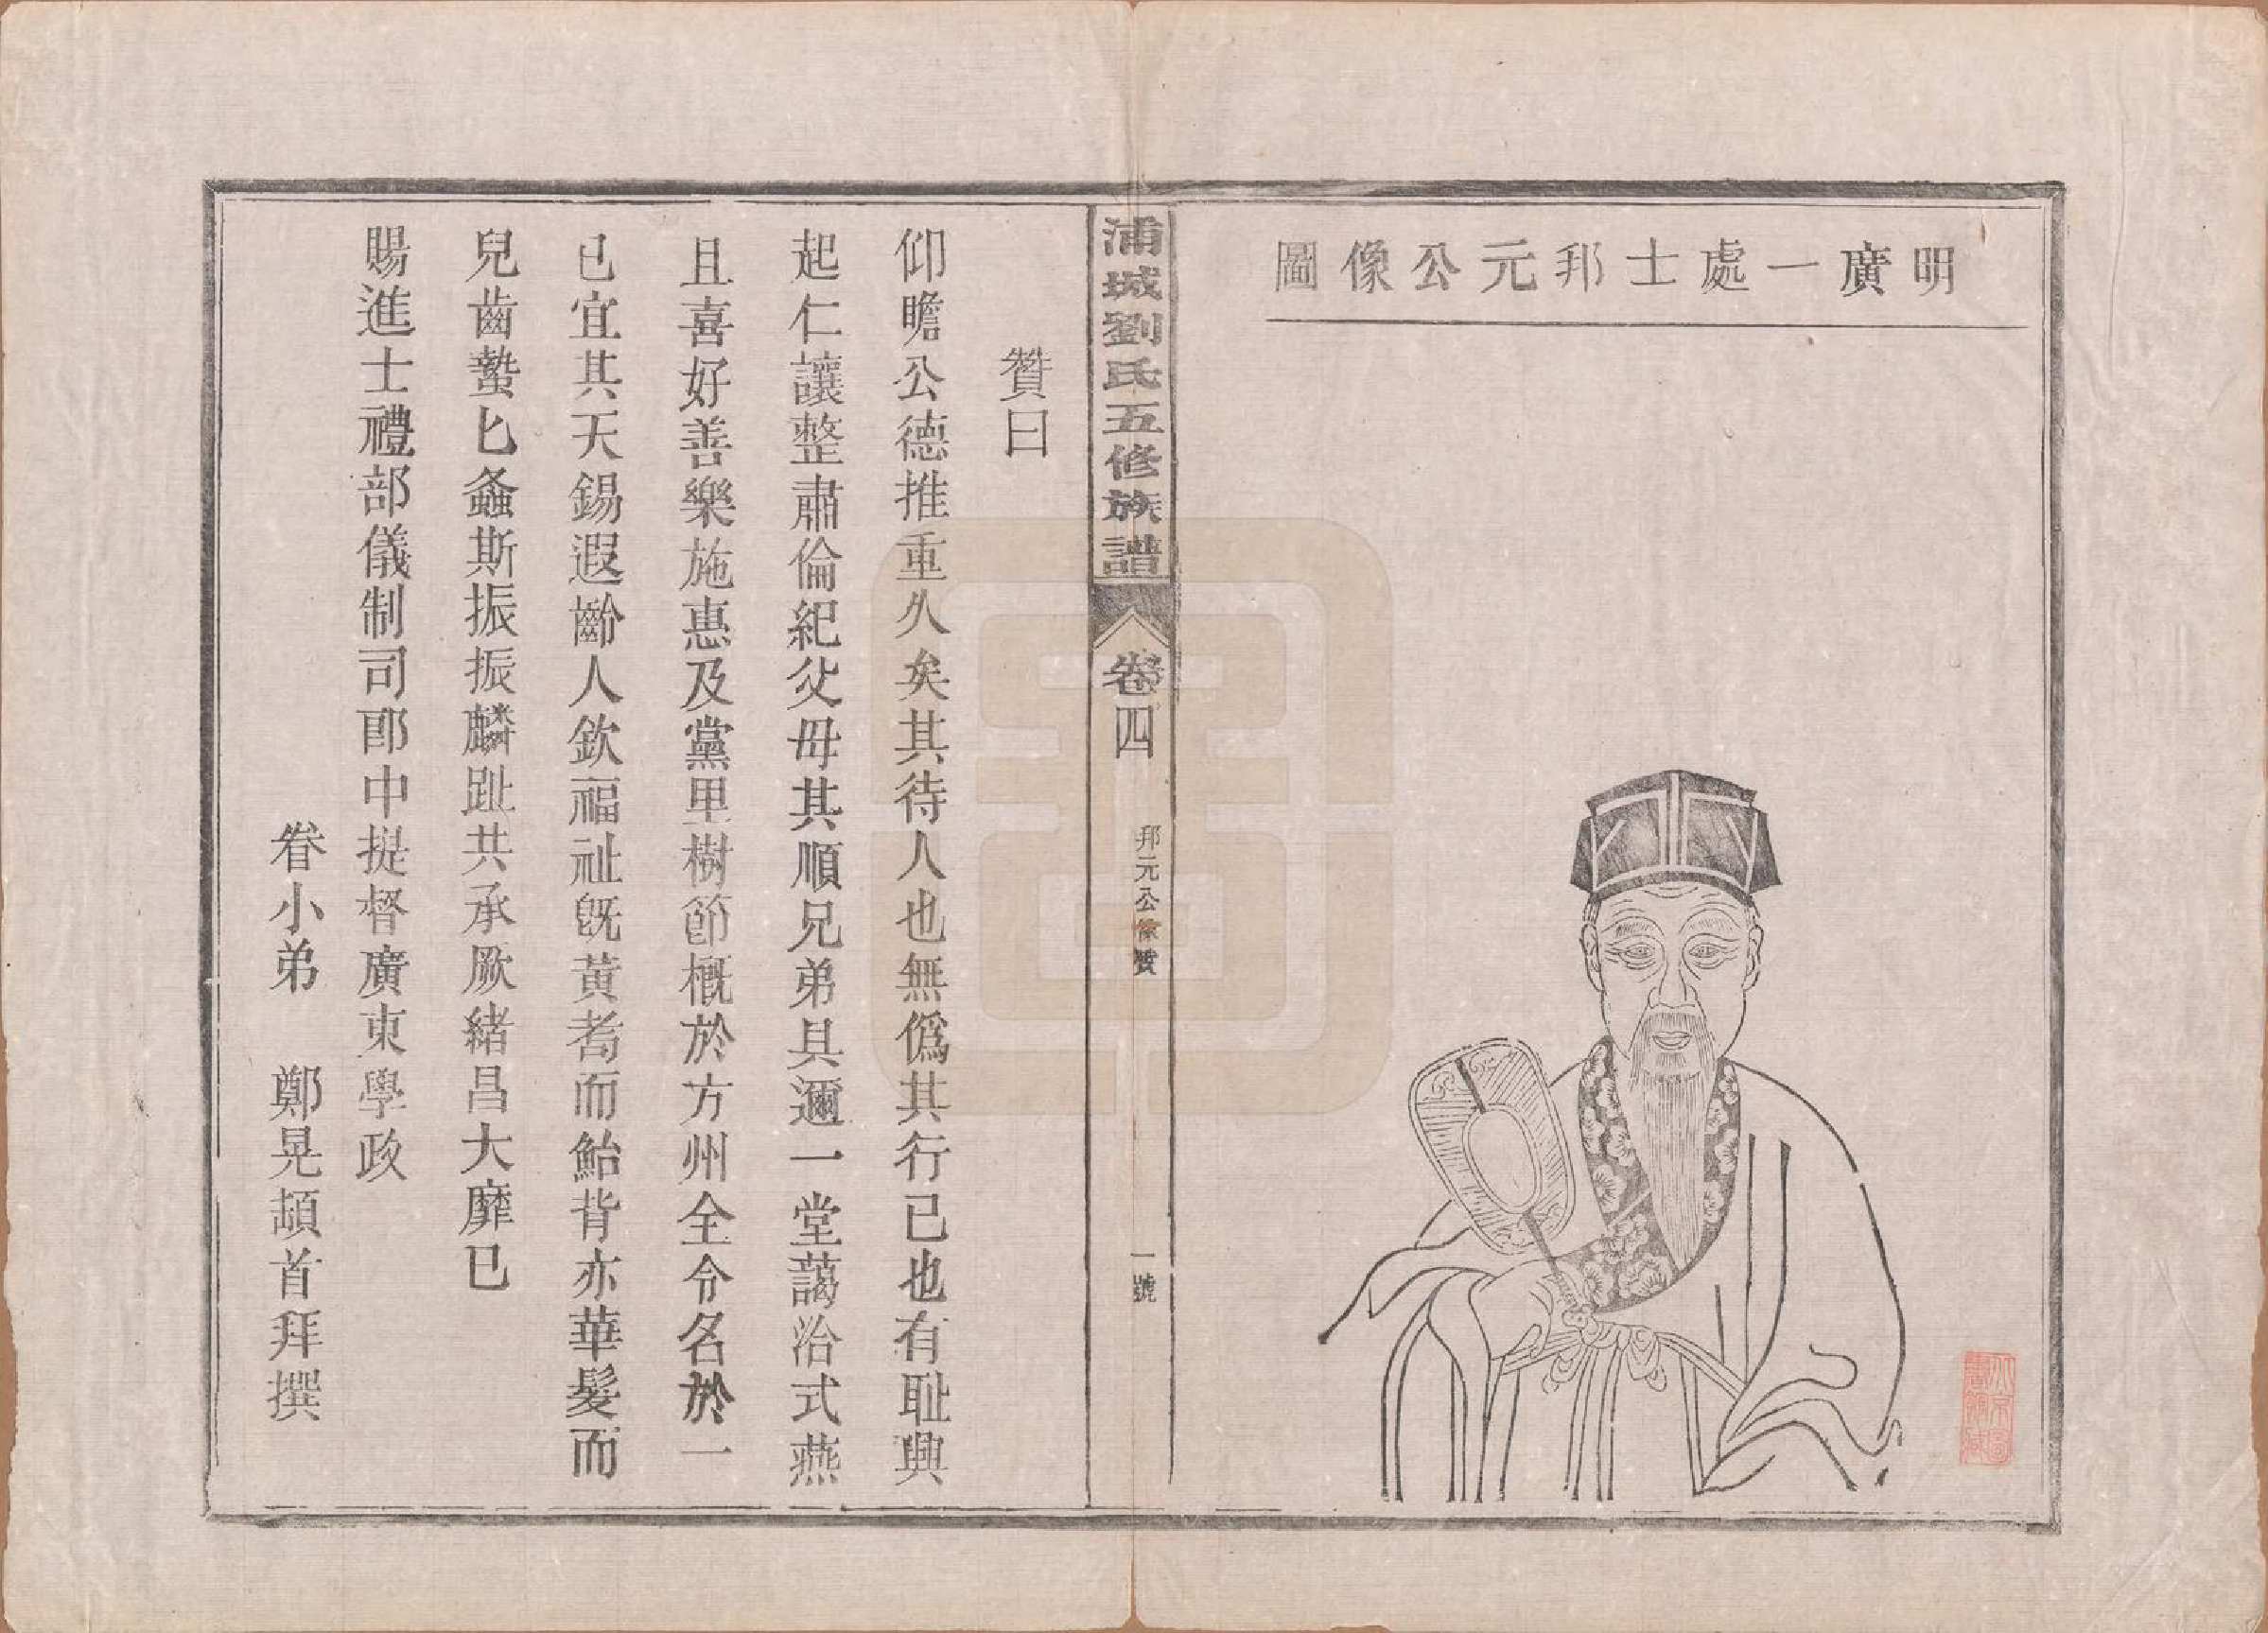 明廣一處士邦元公像圖
浦城劉氏五修族譜
卷四
邦元公像贊
一號
贊曰
仰瞻公德推重久矣其待人也無僞其行已也有耻興
起仁讓整肅倫紀父母其順兄弟具邇一堂藹洽式燕
且喜好善樂施惠及黨里樹節概於方州全令名於一
已宜其天錫遐齡人欽福祉既黃耇而鮐背亦華髮而
兒齒蟄蟄螽斯振振麟趾共承厥緒昌大靡已
賜進士禮部儀制司郎中提督廣東學政
眷小弟　鄭晃頓首拜撰